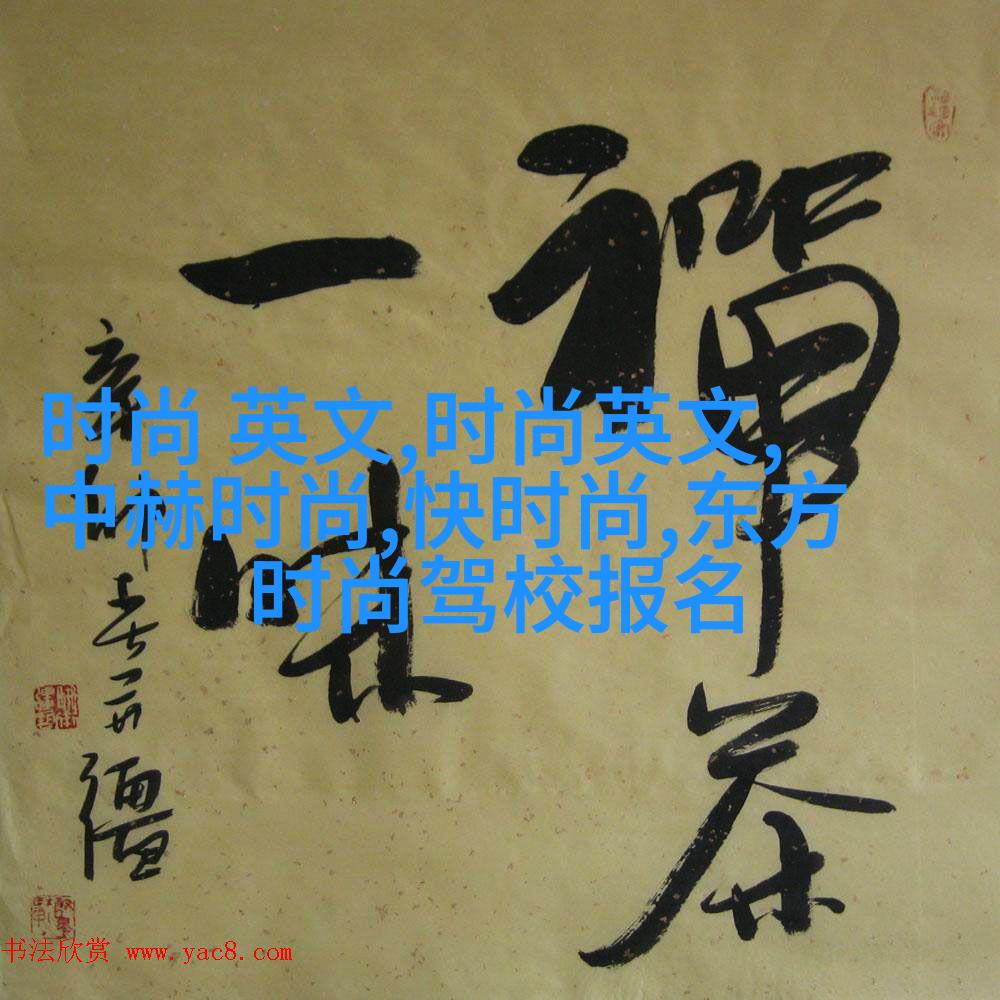 禅茶
一味
时尚 英文,时尚英文,
中赫时尚,快时尚,东方
时尚驾校报名
书法欣赏 www.yac8.com